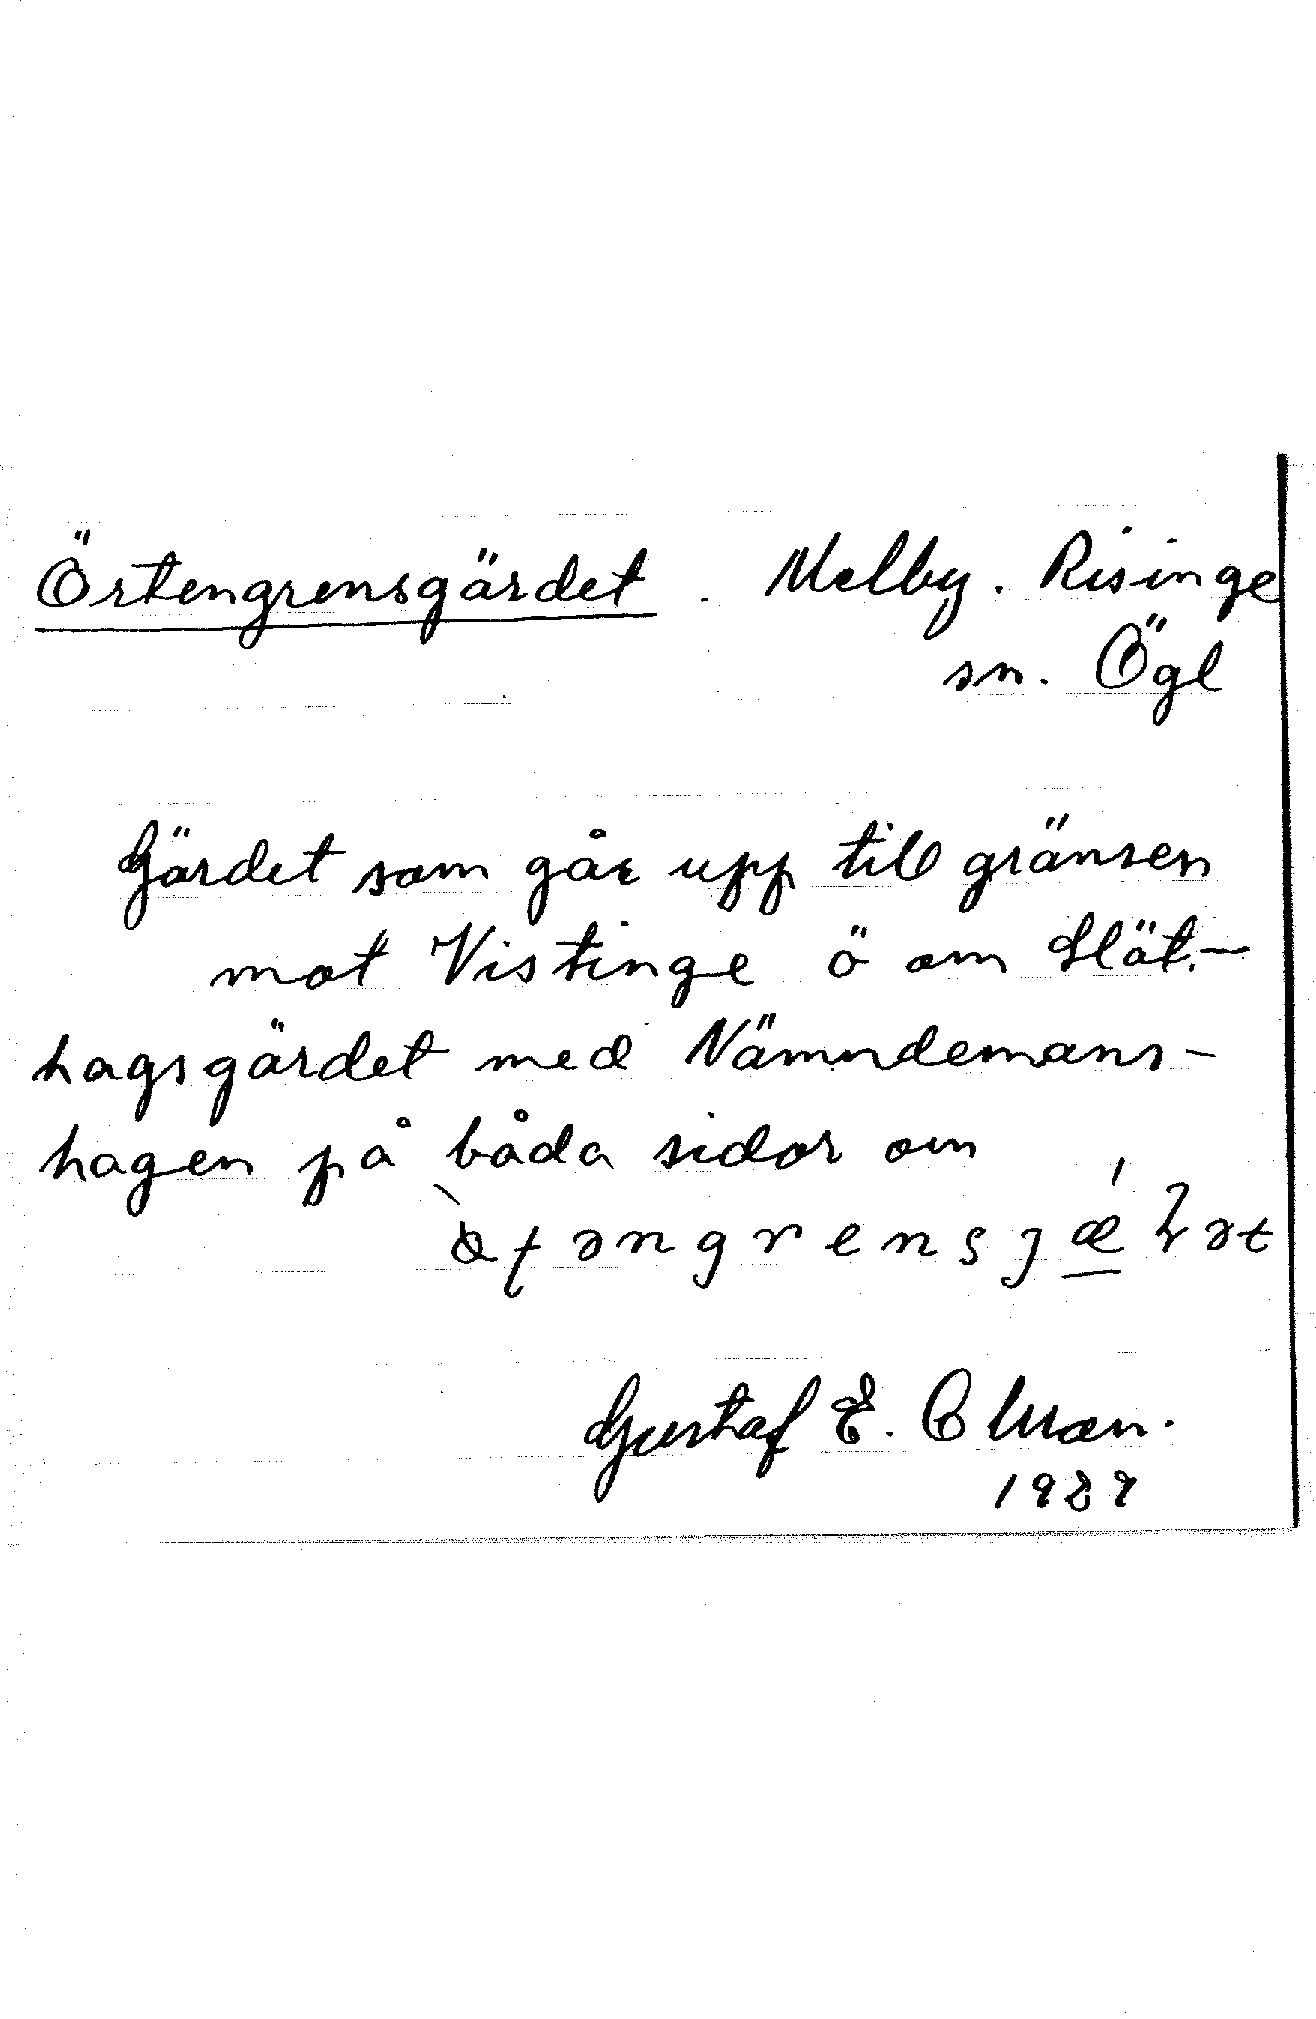 Örtengrensgärdet. Melby. Risinge
sn. Ögl
Gärdet som går upp till gränsen
mot Vistinge ö om Slät-
hagsgärdet med Nämndemans-
hagen på båda sidor om
Gustaf E. Ohman.
1929